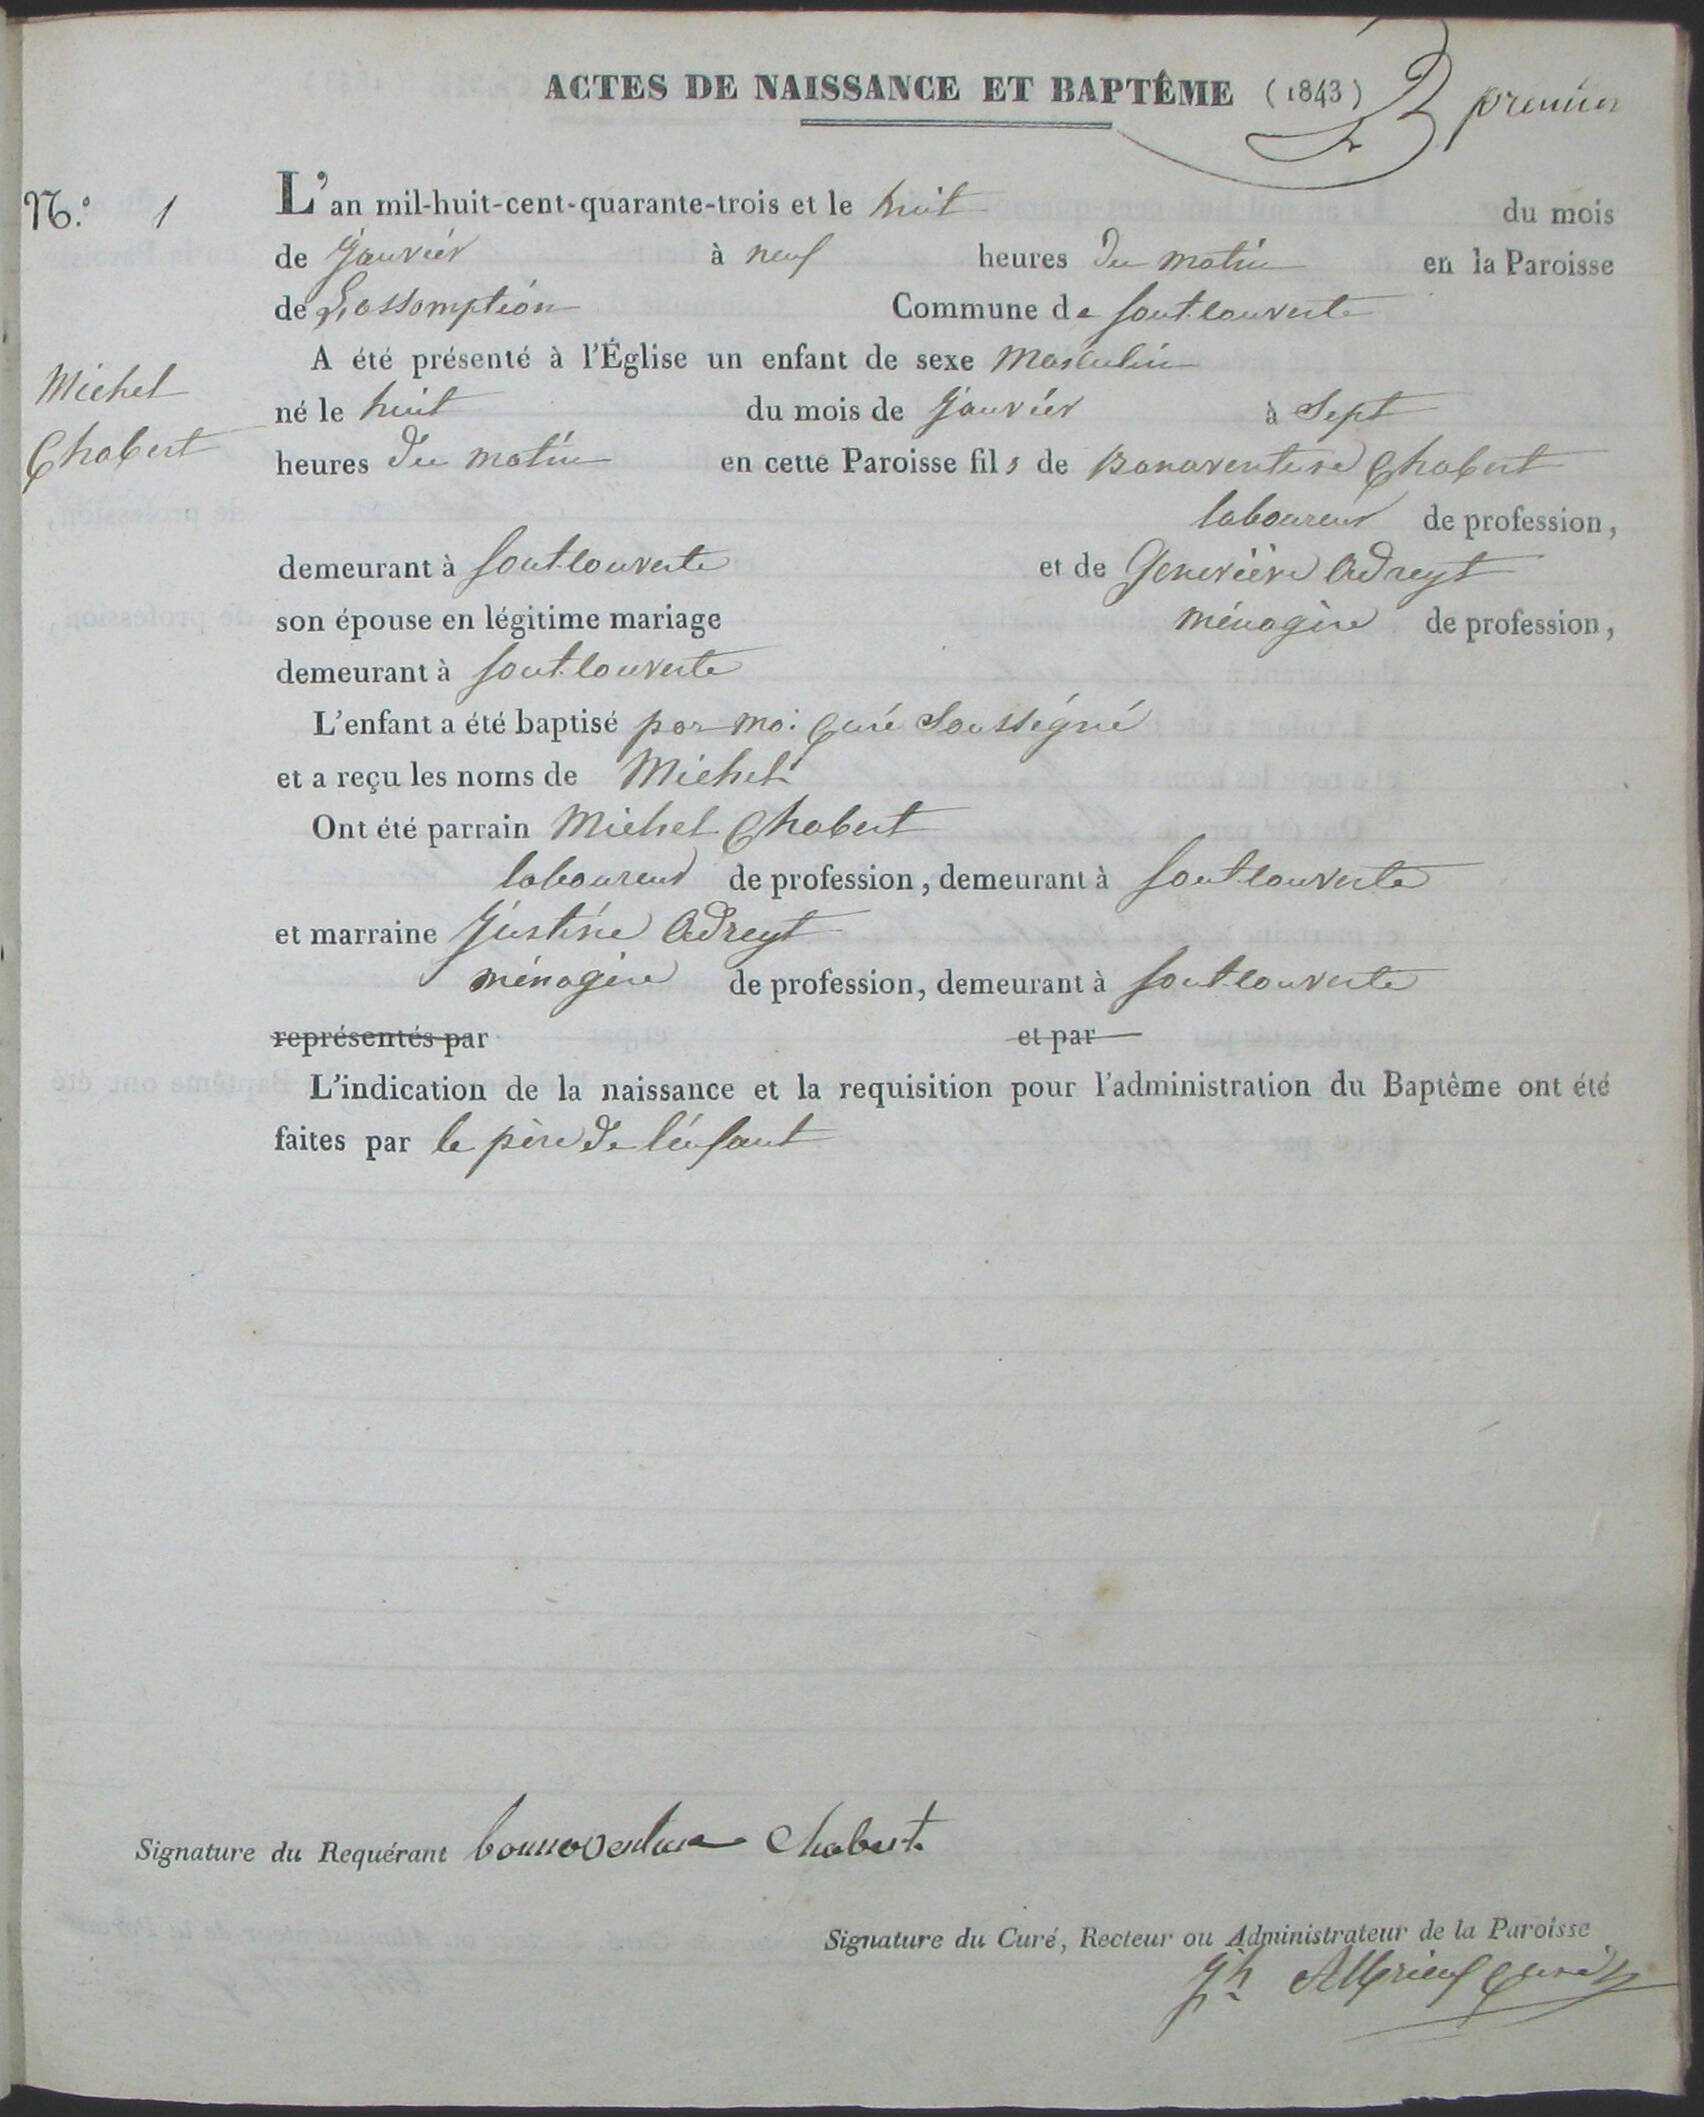 ACTES DE NAISSANCE ET BAPTÊME (1843) premier
N.º 1
L'an mil-huit-cent-quarante-trois et le huit du mois
de Janvier à neuf heures du matin en la Paroisse
de L'assomption Commune de fontcouverte
A été présenté à l'Église un enfant de sexe masculin
Michel
Chabert
né le huit du mois de Janvier à Sept
heures du matin en cette Paroisse fils de Bonaventure Chabert
laboureur de profession,
demeurant à fontcouverte et de Geneviève Adreyt
son épouse en légitime mariage ménagère de profession,
demeurant à fontcouverte
L'enfant a été baptisé par moi Curé Soussigné
et a reçu les noms de Michel
Ont été parrain Michel Chabert
laboureur de profession, demeurant à fontcouverte
et marraine Justine Adreyt
ménagère de profession, demeurant à fontcouverte
représentés par et par
L'indication de la naissance et la requisition pour l'administration du Baptême ont été
faites par le père de l'enfant
Signature du Requérant bonnoventure Chabert
Signature du Curé, Recteur ou Administrateur de la Paroisse
Jh curé